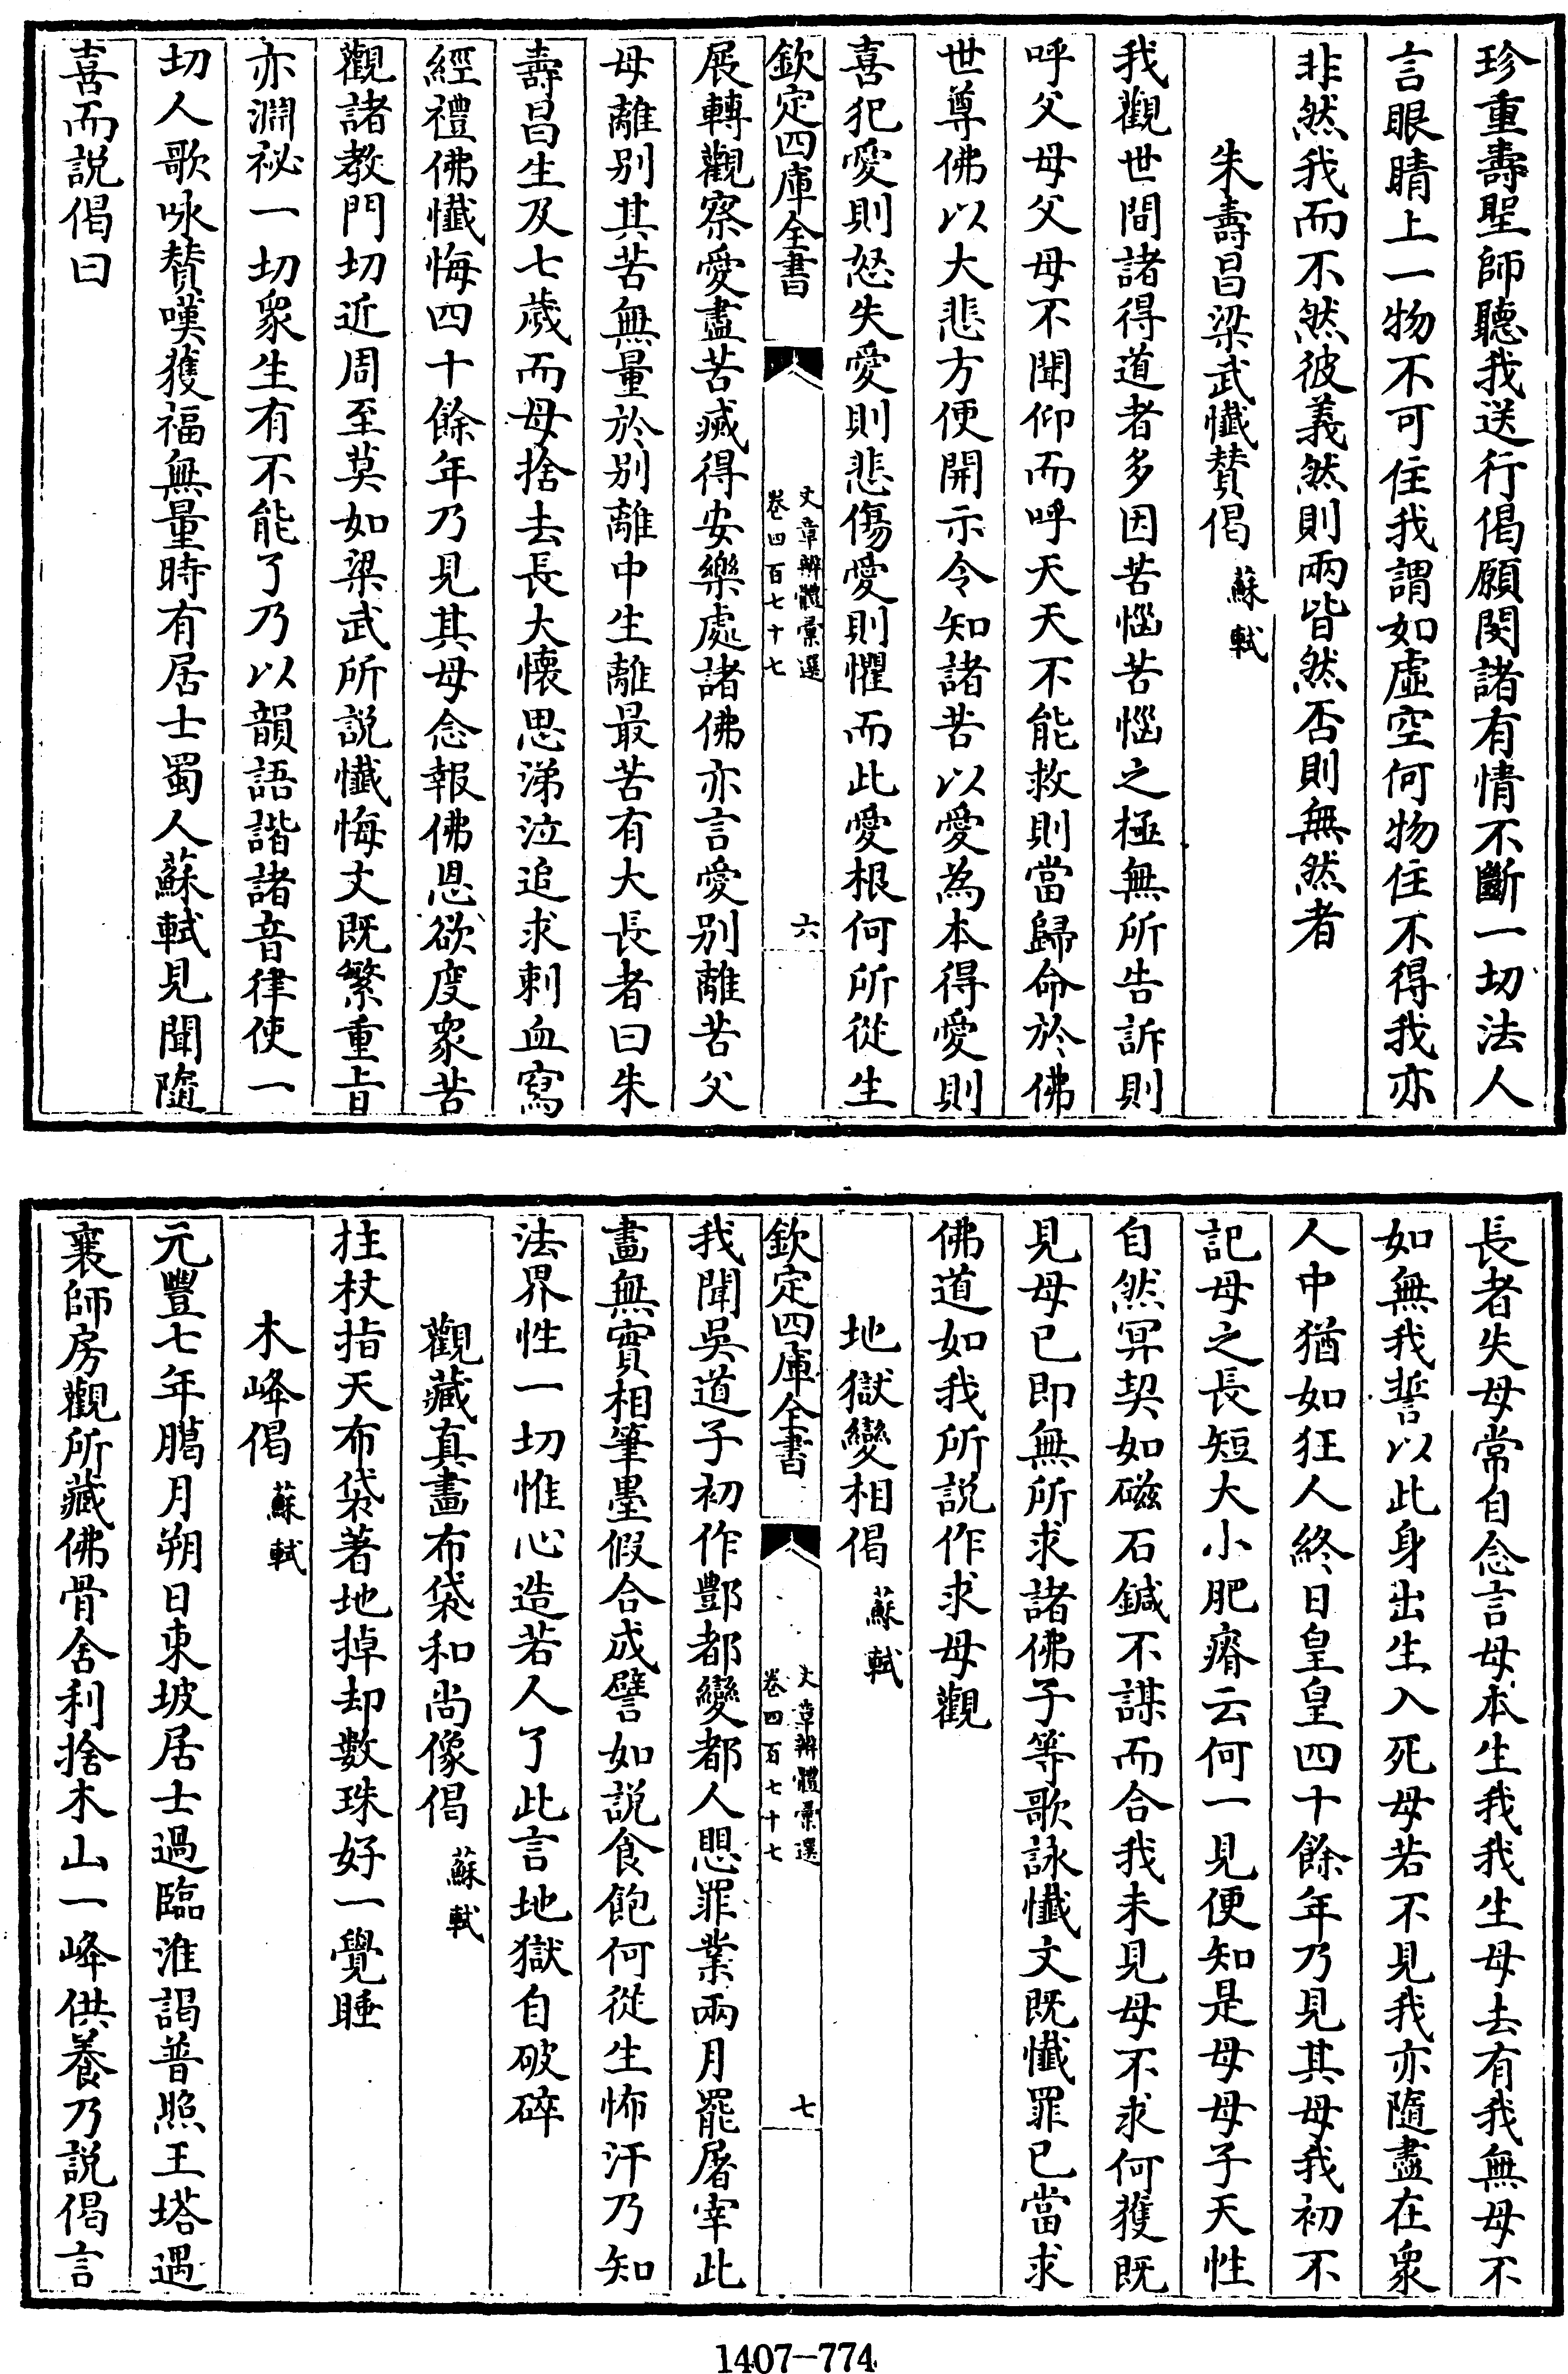 珍重壽聖師聽我送行偈願閔諸有情不斷一切法人
言眼睛上一物不可住我謂如虛空何物住不得我亦
非然我而不然彼義然則兩皆然否則無然者
朱壽昌梁武懺贊偈 蘇軾
我觀世間諸得道者多因苦惱苦惱之極無所告訴則
呼父母父母不聞仰而呼天天不能救則當歸命於佛
世尊佛以大悲方便開示令知諸苦以愛為本得愛則
喜犯愛則怒失愛則悲傷愛則懼而此愛根何所從生
欽定四庫全書
文章辨體彙選
卷四百七十七
六
展轉觀察愛盡苦滅得安樂處諸佛亦言愛别離苦父
母離别其苦無量於别離中生離最苦有大長者曰朱
壽昌生及七歲而母捨去長大懷思涕泣追求刺血寫
經禮佛懺悔四十餘年乃見其母念報佛恩欲度衆苦
觀諸教門切近周至莫如梁武所説懺悔文既繁重㫖
亦淵祕一切衆生有不能了乃以韻語諧諸音律使一
切人歌咏贊嘆獲福無量時有居士蜀人蘇軾見聞隨
喜而説偈曰
長者失母常自念言母本生我我生母去有我無母不
如無我誓以此身出生入死母若不見我亦隨盡在衆
人中猶如狂人終日皇皇四十餘年乃見其母我初不
記母之長短大小肥瘠云何一見便知是母母子天性
自然冥契如磁石鍼不謀而合我未見母不求何獲既
見母已即無所求諸佛子等歌詠懺文既懺罪已當求
佛道如我所説作求母觀
地獄變相偈 蘇軾
欽定四庫全書
文章辨體彙選
卷四百七十七
七
我聞吳道子初作酆都變都人懼罪業兩月罷屠宰此
畫無實相筆墨假合成譬如説食飽何從生怖汗乃知
法界性一切惟心造若人了此言地獄自破碎
觀藏真畫布袋和尚像偈 蘇軾
拄杖指天布袋著地掉却數珠好一覺睡
木峰偈 蘇軾
元豐七年臈月朔日東坡居士過臨淮謁普照王塔過
襄師房觀所藏佛骨舍利捨木山一峰供養乃説偈言
1407-774